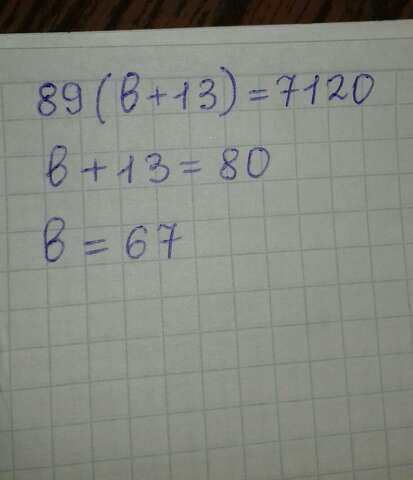 89(в+13)=7120
в+13=80
в=67